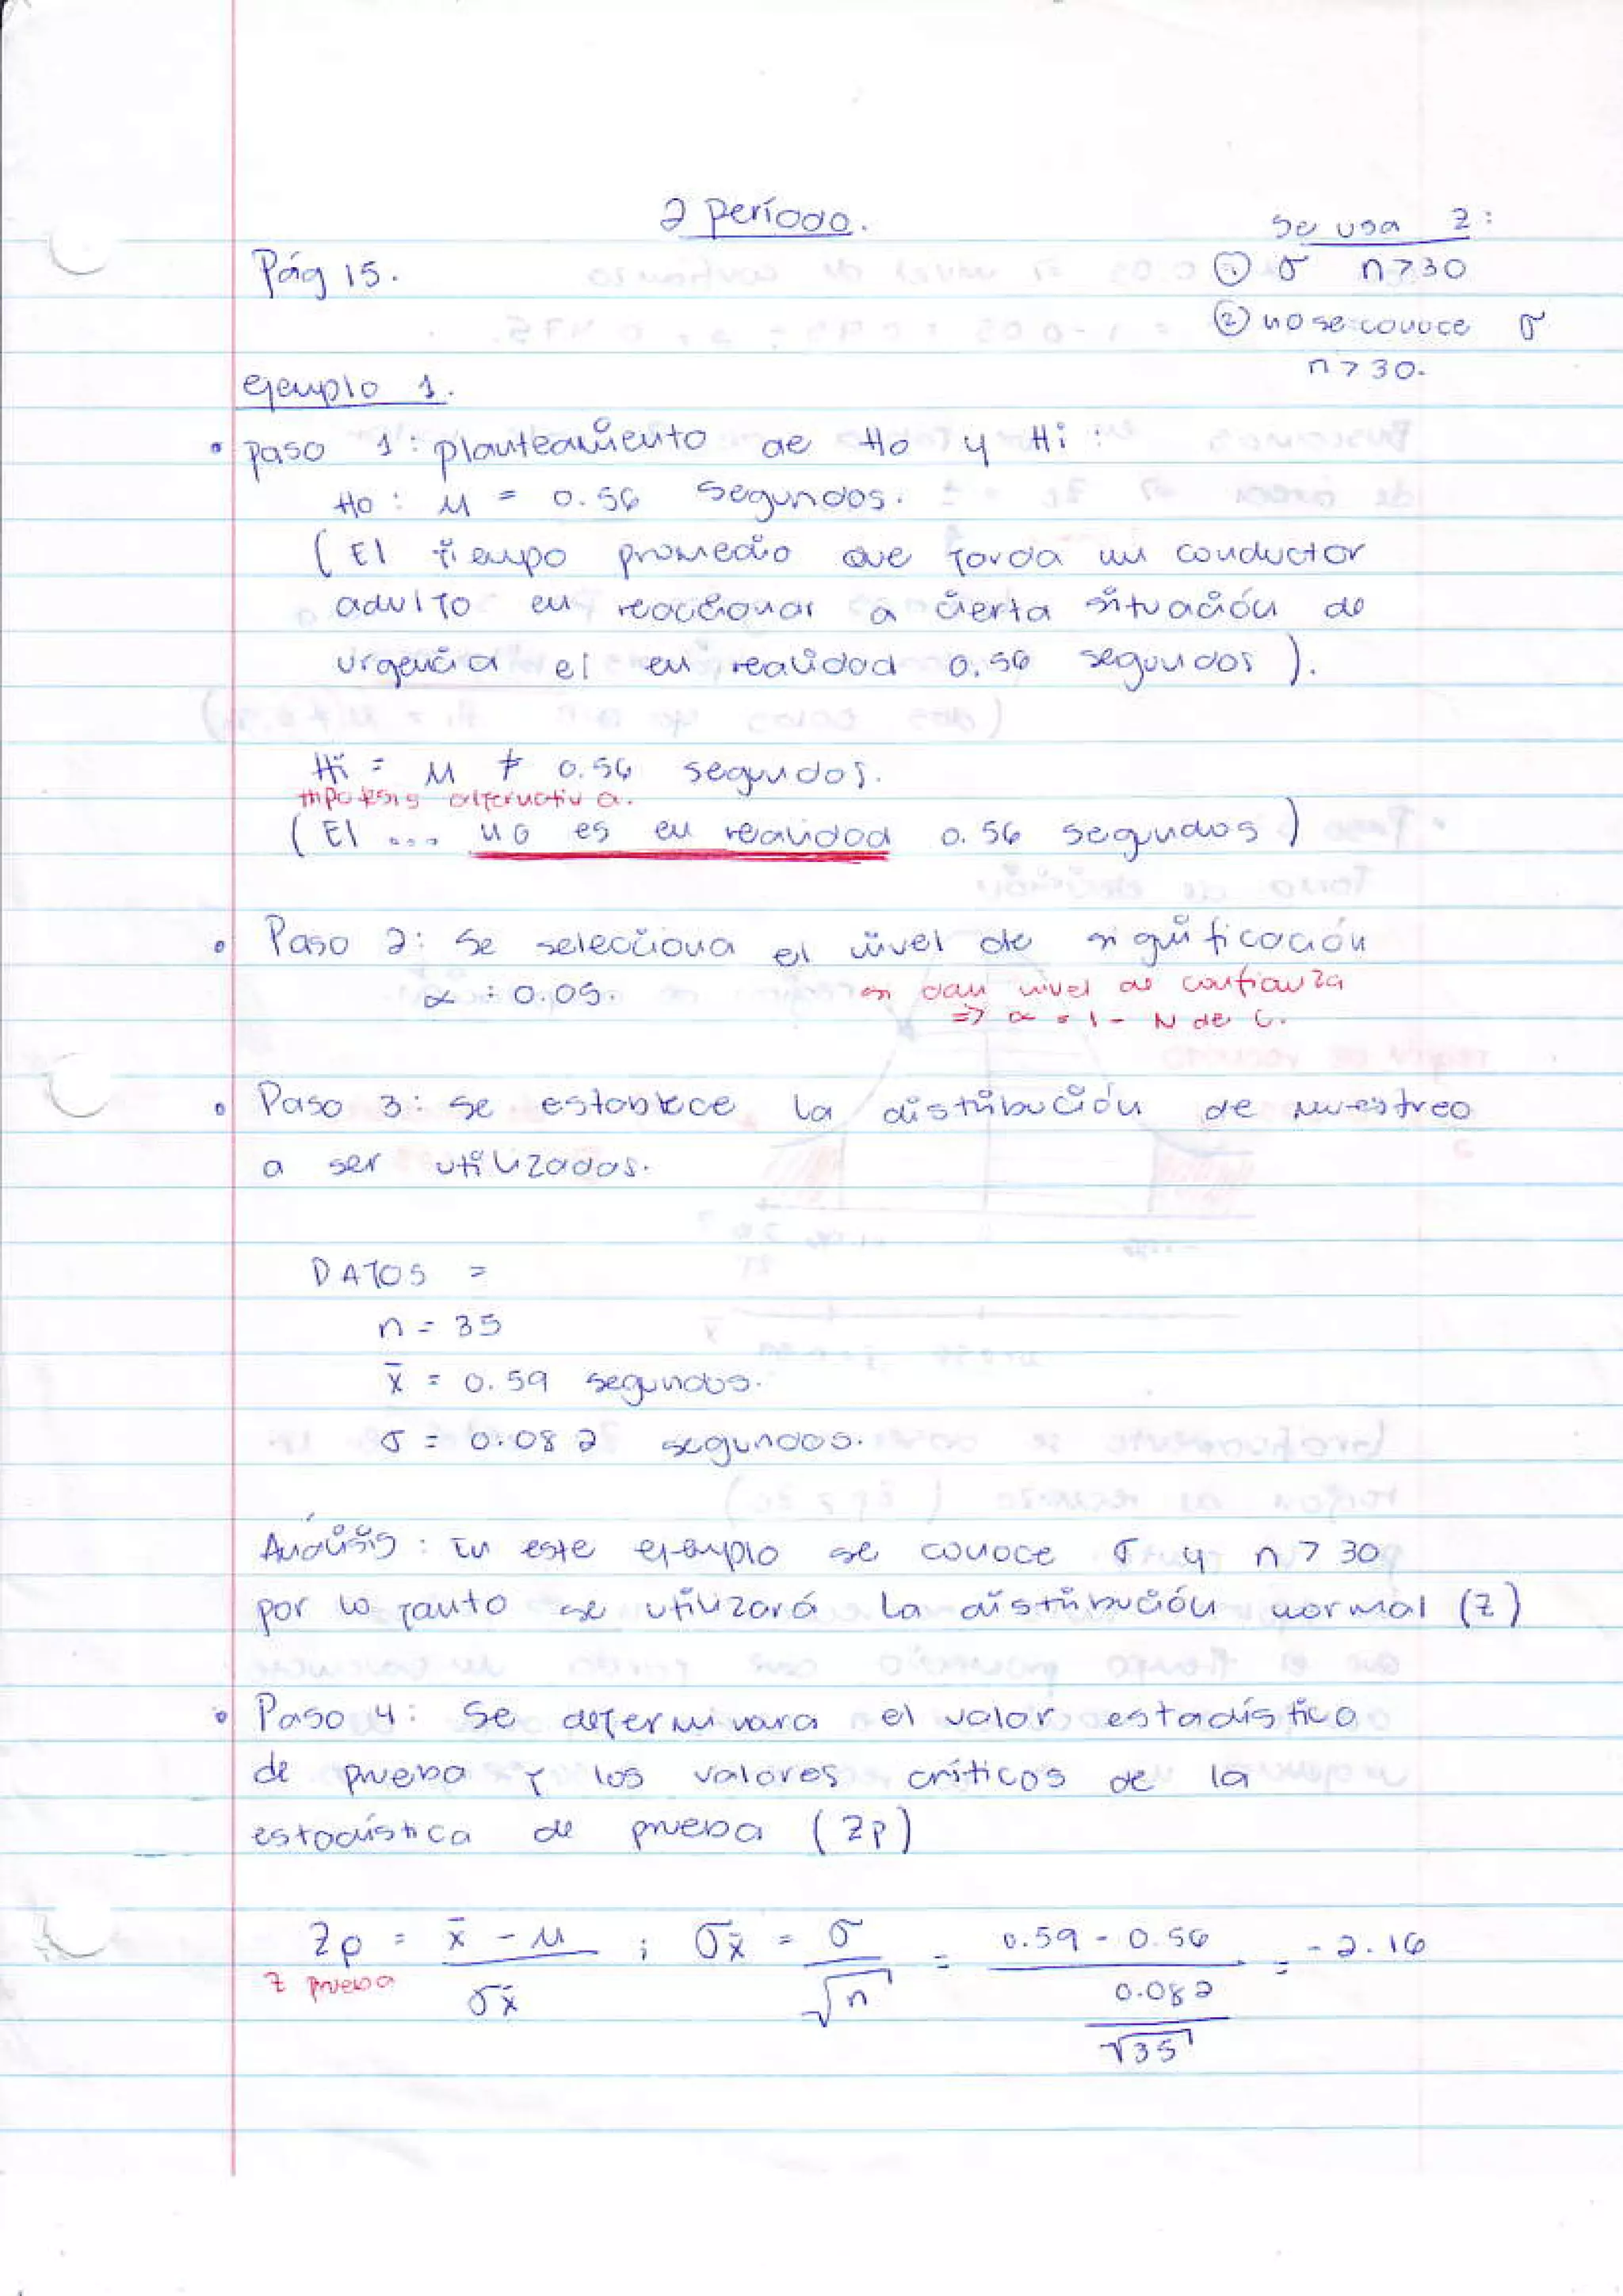 2 Período.
Se usa Z:
Pág 15.
① σ n>30
② no se conoce σ
n>30.
ejemplo 1.
• Paso 1: planteamiento de Ho y Hi:
Ho: μ = 0.56 segundos.
(El tiempo promedio que tarda un conductor
adulto en reaccionar a cierta situación de
urgencia es en realidad 0.56 segundos).
Hi = μ ≠ 0.56 segundos.
Hipotesis alternativa.
(El ... no es en realidad 0.56 segundos)
• Paso 2: Se selecciona el nivel de significación
α = 0.05.
si dan nivel de confianza
=> α = 1 - N de C.
• Paso 3: se establece la distribución de muestreo
a ser utilizadas.
DATOS =
n = 35
x̄ = 0.59 segundos.
σ = 0.082 segundos.
Análisis: En este ejemplo se conoce σ y n > 30
por lo tanto se utilizará la distribución normal (Z)
• Paso 4: Se determinara el valor estadístico
de prueba y los valores críticos de la
estadística de prueba (Zp)
Zp = x̄ - μ / σx̄ ; σx̄ = σ / √n = 0.59 - 0.56 / 0.082 / √35 = - 2.16
Z prueba